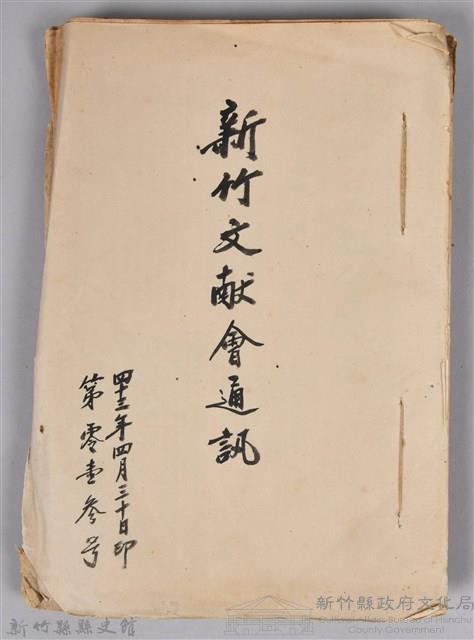 新竹文献會通訊
四十三年四月三十日印
第零壹參号
新竹縣縣史館
新竹縣政府文化局
Cultural Affairs Bureau of Hsinchu
County Government